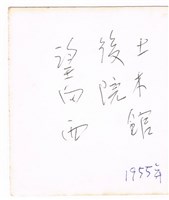 土木館
後院
望向西
1955年